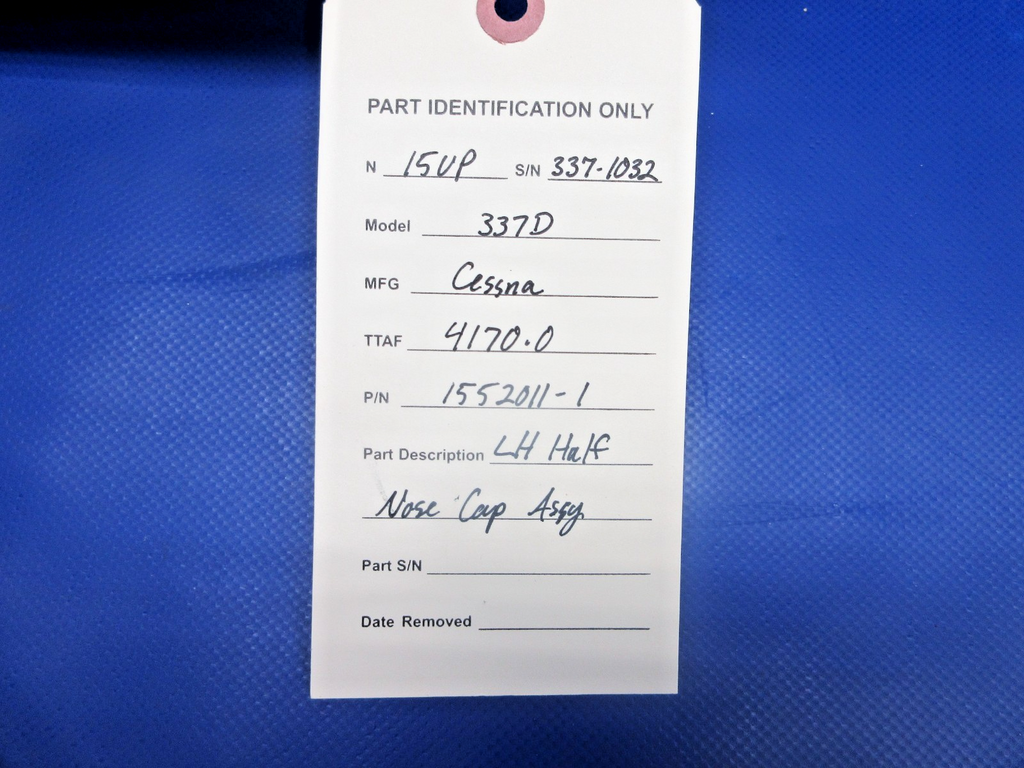 PART IDENTIFICATION ONLY
N 15UP S/N 337-1032
Model 337D
MFG Cessna
TTAF 4170.0
P/N 1552011-1
Part Description LH Half
Nose Cap Assy
Part S/N
Date Removed